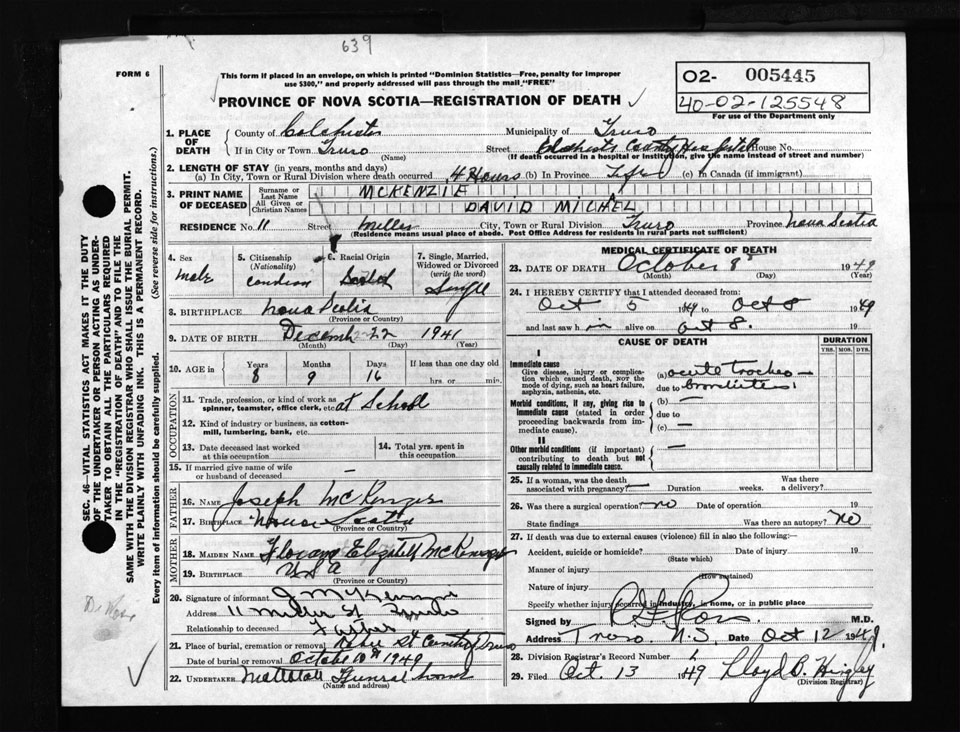 639
FORM 6
This form if placed in an envelope, on which is printed "Dominion Statistics—Free, penalty for improper
use $300," and properly addressed will pass through the mail "FREE"
O2- 005445
40-02-125548
For use of the Department only
PROVINCE OF NOVA SCOTIA—REGISTRATION OF DEATH
1. PLACE OF DEATH
County of Colchester Municipality of Truro
If in City or Town Truro (Name) Street Colchester County Hospital House No.
(If death occurred in a hospital or institution, give the name instead of street and number)
2. LENGTH OF STAY (in years, months and days)
(a) In City, Town or Rural Division where death occurred 4 Hours (b) In Province Life (c) In Canada (if immigrant)
3. PRINT NAME OF DECEASED
Surname or Last Name MCKENZIE
All Given or Christian Names DAVID MICHEL
RESIDENCE No. 11 Street Miller City, Town or Rural Division Truro Province Nova Scotia
(Residence means usual place of abode. Post Office Address for residents in rural parts not sufficient)
4. Sex
male
5. Citizenship (Nationality)
6. Racial Origin
7. Single, Married, Widowed or Divorced (write the word)
Single
8. BIRTHPLACE Nova Scotia
(Province or Country)
9. DATE OF BIRTH December 22 1941
(Month) (Day) (Year)
10. AGE in
Years Months Days If less than one day old
8 9 16 hrs. or min.
OCCUPATION
11. Trade, profession, or kind of work as
spinner, teamster, office clerk, etc. at School
12. Kind of industry or business, as cotton-
mill, lumbering, bank, etc.
13. Date deceased last worked
at this occupation
14. Total yrs. spent in
this occupation
15. If married give name of wife
or husband of deceased —
FATHER
16. NAME Joseph McKenzie
17. BIRTHPLACE Nova Scotia
(Province or Country)
MOTHER
18. MAIDEN NAME Elizabeth McKenzie
19. BIRTHPLACE USA
(Province or Country)
20. Signature of informant J McKenzie
Address 11 Miller St Truro
Relationship to deceased Father
21. Place of burial, cremation or removal St Cemetery Truro
Date of burial or removal October 10th 1949
22. UNDERTAKER Mattatall Funeral Home
(Name and address)
MEDICAL CERTIFICATE OF DEATH
23. DATE OF DEATH October 8 1949
(Month) (Day) (Year)
24. I HEREBY CERTIFY that I attended deceased from:
Oct 5 1949 to Oct 8 1949
and last saw h im alive on Oct 8. 19
CAUSE OF DEATH
DURATION
YRS. MOS. DYS.
I
Immediate cause
Give disease, injury or complica-
tion which caused death, not the
mode of dying, such as heart failure,
asphyxia, asthenia, etc.
(a) acute tracheo—
due to bronchitis
Morbid conditions, if any, giving rise to
immediate cause (stated in order
proceeding backwards from im-
mediate cause).
(b) —
due to
(c) —
II
Other morbid conditions (if important)
contributing to death but not
causally related to immediate cause.
—
25. If a woman, was the death
associated with pregnancy? — Duration weeks. Was there
a delivery?
26. Was there a surgical operation? no Date of operation 19
State findings Was there an autopsy? No
27. If death was due to external causes (violence) fill in also the following:—
Accident, suicide or homicide? Date of injury 19
(State which)
Manner of injury
(How sustained)
Nature of injury
Specify whether injury occurred in industry, in home, or in public place
Signed by Ross M.D.
Address Truro. N.S. Date Oct 12 1949
28. Division Registrar's Record Number
29. Filed Oct. 13 1949 Lloyd B.
(Division Registrar)
SEC. 46—VITAL STATISTICS ACT MAKES IT THE DUTY
OF THE UNDERTAKER OR PERSON ACTING AS UNDER-
TAKER TO OBTAIN ALL THE PARTICULARS REQUIRED
IN THE "REGISTRATION OF DEATH" AND TO FILE THE
SAME WITH THE DIVISION REGISTRAR WHO SHALL ISSUE THE BURIAL PERMIT.
WRITE PLAINLY WITH UNFADING INK. THIS IS A PERMANENT RECORD.
Every item of information should be carefully supplied. (See reverse side for instructions.)